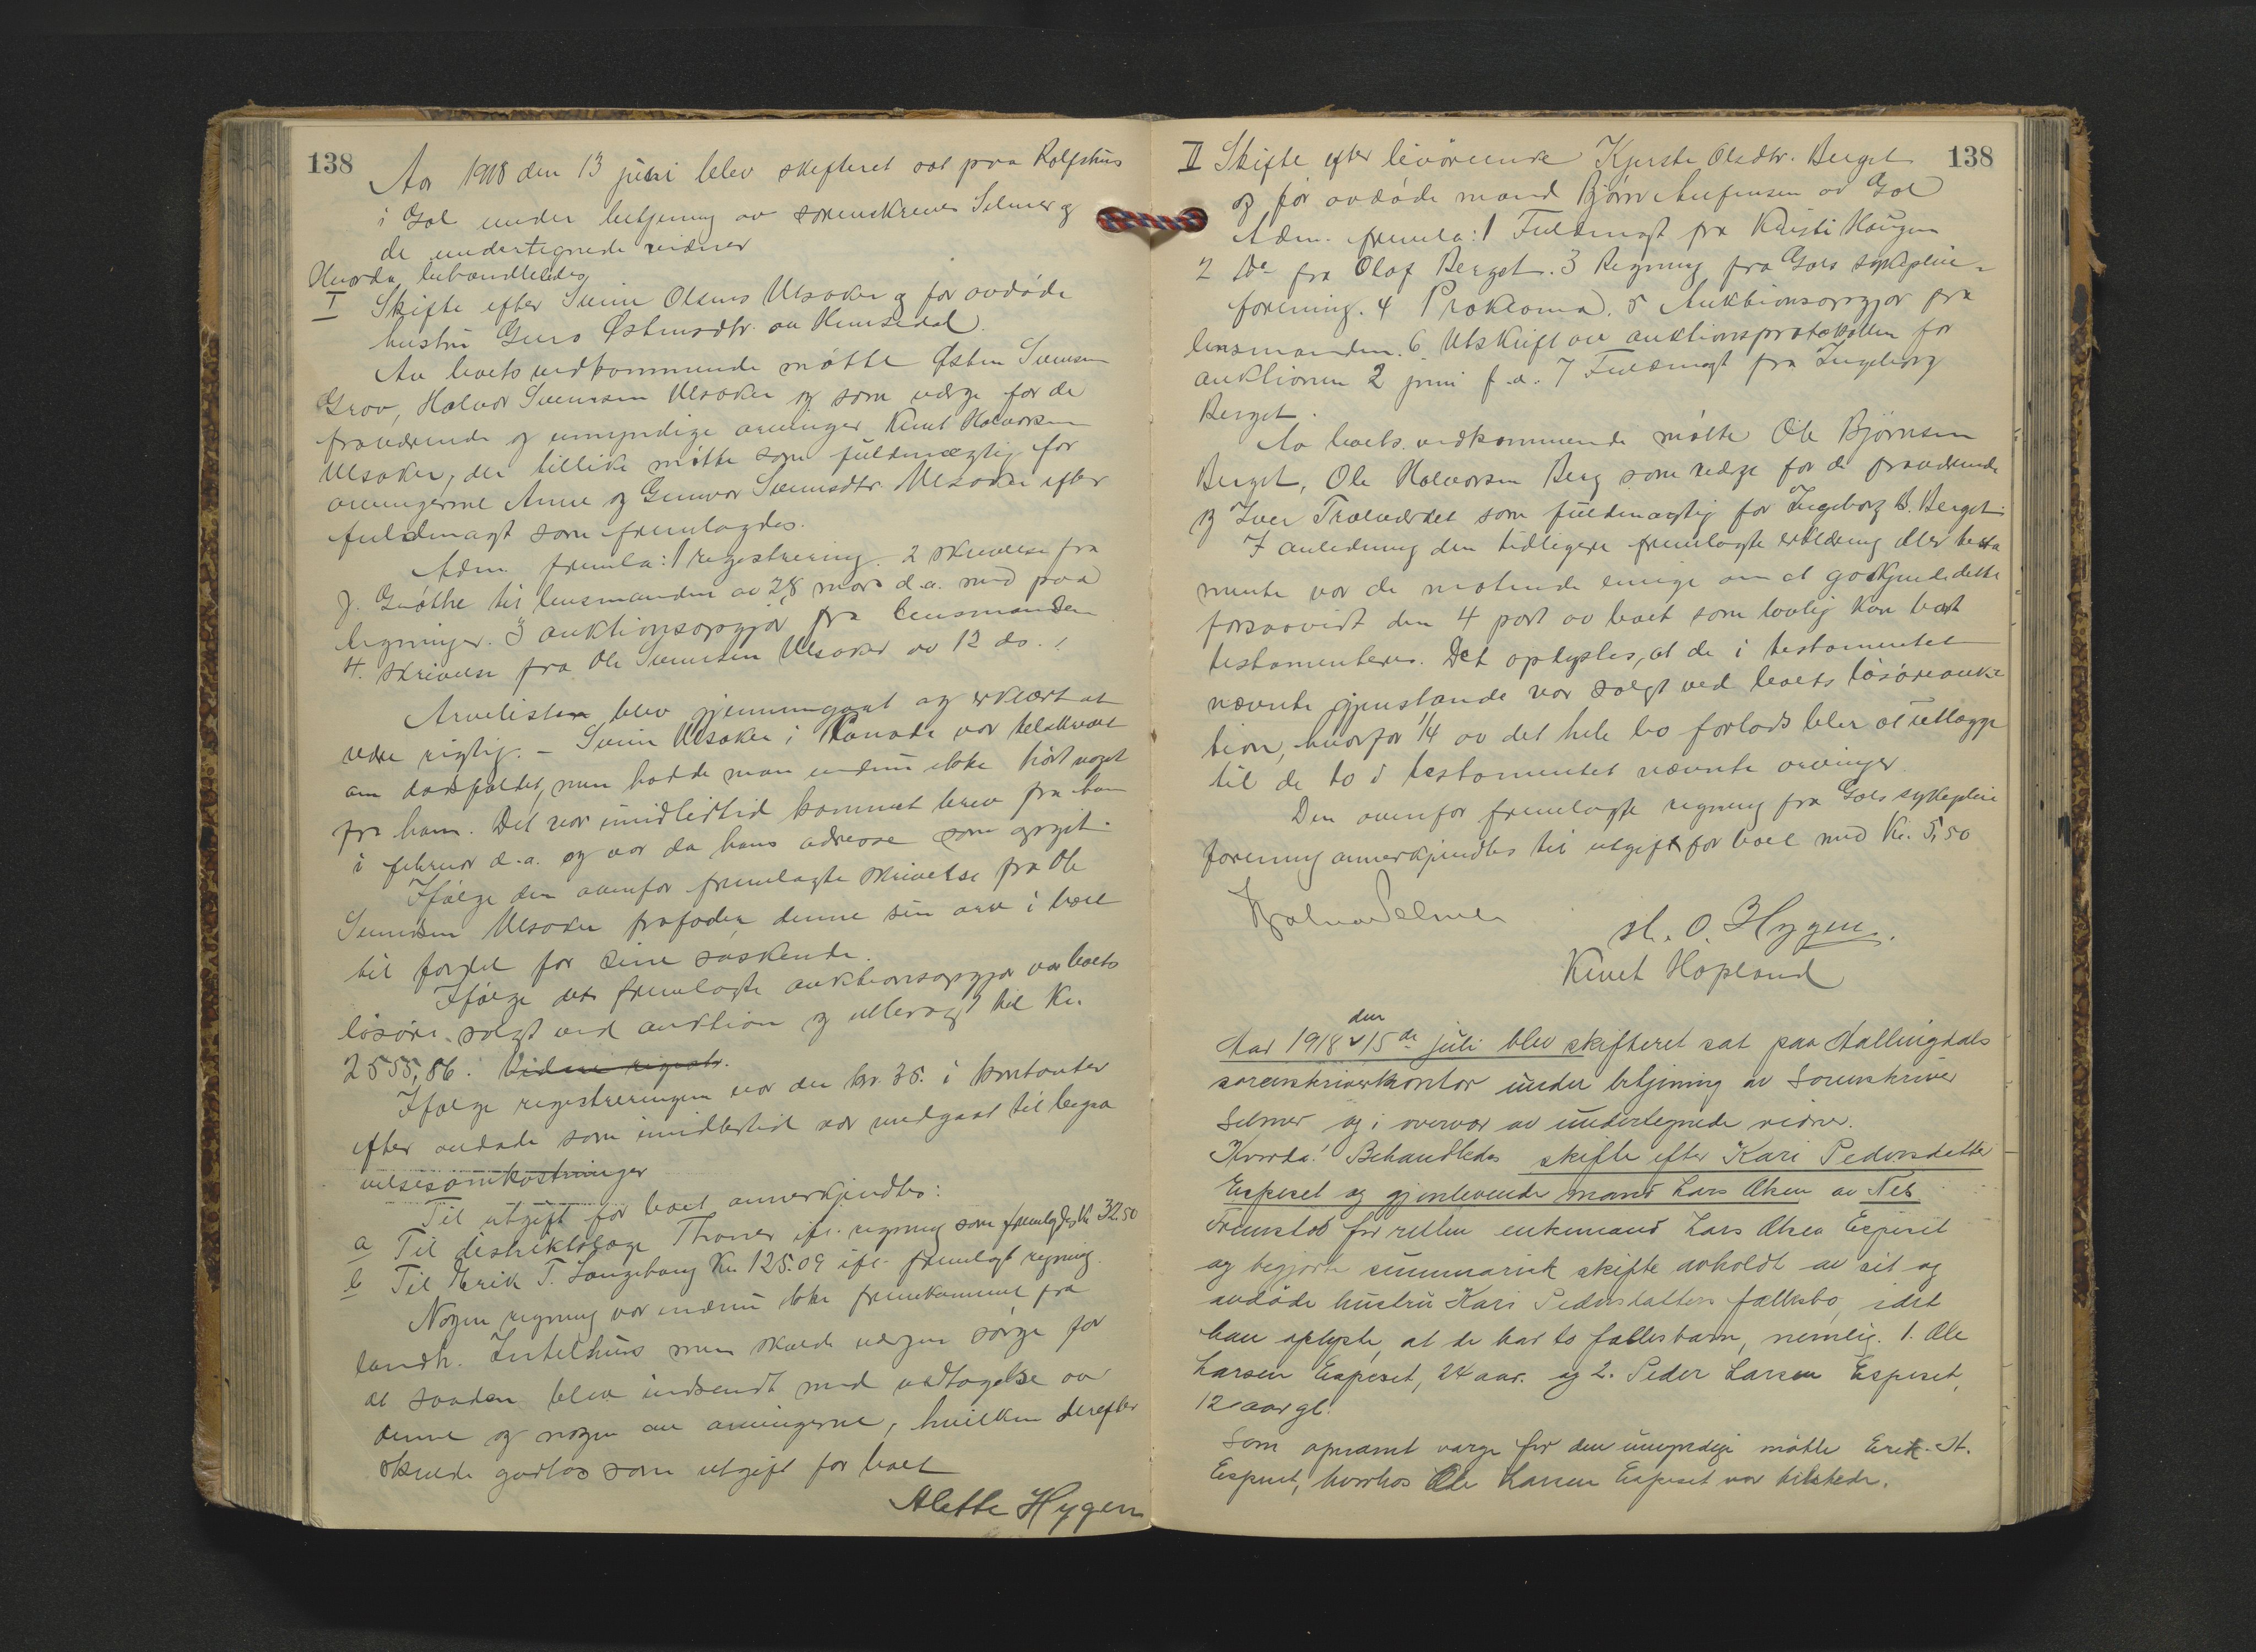 138
Aar 1918 den 13 juli blev skifteret sat paa Rolfshus
i Gol under betjening av sorenskriver Selmer og
de undertegnede vidner
Hvorda behandledes
I Skifte efter Svein Olsens Ulsaker og før avdøde
hustru Guro Østensdtr. av Hemsedal.
Av boets vedkommende møtte Østen Svensen
Grøv, Halvor Svensen Ulsaker og som verge for de
fraværende og umyndige arvinger Knut Halvorsen
Ulsaker, der tillike møtte som fuldmægtig for
arvingerne Anne og Gunvor Svensdtr. Ulsaker efter
fuldmagt som fremlagdes.
Adm. fremla: 1 registrering. 2 skrivelse fra
J. Grøthe til lensmanden av 28 mars d.a. med paa
tegninger. 3 auktionsopgjør fra lensmanden
4. skrivelse fra Ole Svensen Ulsaker av 12 ds.
Arvelisten blev gjennemgaat og erklært at
være rigtig. – Svein Ulsaker i Kanada var tilskrevet
om dødsfaldet, men hadde man endnu ikke hørt noget
fra ham. Det var imidlertid kommet brev fra ham
i februar d.a. og var da hans adresse som opgit.
Ifølge den ovenfor fremlagte skrivelse fra Ole
Svensen Ulsaker frafalder denne sin arv i boet
til fordel for sine søskende.
Ifølge det fremlagte auktionsopgjør var boets
løsøre solgt ved auktion og utbragt til Kr.
2555,86. Videre registr.
Ifølge registreringen var der kr. 35. i kontanter
efter avdøde som imidlertid var medgaat til begra
velsesomkostninger
Til utgift for boet annerkjendtes:
a Til distriktslæge Thoner ifl. regning som fremlagdes Kr 32.50
b Til Erik T. Langehaug Kr. 125.09 ifl. fremlagt regning.
Nogen regning var endnu ikke fremkommet fra
landh. Intelhus men skulde vergen sørge for
at saadan blev indsendt med vedtagelse av
denne og nogen av arvingerne, hvilken derefter
skulde godtas som utgift for boet
Alette Hygen
138
II Skifte efter livørende Kjersti Olsdtr. Berget
og før avdøde mand Bjørn Aufinsen av Gol
Adm. fremla: 1 Fuldmagt fra Kristi Haugen
2 Do fra Olaf Berget. 3 Regning fra Gols sykepleie-
forening. 4 Proklama. 5 Auktionsopgjør fra
lensmanden. 6. Utskrift av auktionsprotokollen for
auktionen 2 juni f.a. 7 Fuldmagt fra Ingeborg
Berget.
Av boets vedkommende møtte Ole Bjørnsen
Berget, Ole Halvorsen Berg som verge for de fraværende
og Iver Trolværdet som fuldmægtig for Ingeborg B. Berget
I anledning den tidligere fremlagte erklæring eller testa
mente var de møtende enige om at godkjende dette
forsaavidt den 4 part av boet som lovlig kan bort
testamenteres. Det oplystes, at de i testamentet
nævnte gjenstande var solgt ved boets løsøreauk-
tion, hvorfor 1/4 av det hele bo forlods blev at utlægge
til de to i testamentet nævnte arvinger
Den ovenfor fremlagte regning fra Gols sykepleie
forening annerkjendtes til utgift for boet med Kr. 5,50
Hjalmar Selmer
H. O. Hygen.
Knut Hopland
Aar 1918 den 15de juli blev skifteret sat paa Hallingdals
sorenskriverkontor under betjening av Sorenskriver
Selmer og i overvær av undertegnede vidner.
Hvorda: Behandledes skifte efter Kari Pedersdatter
Espeset og gjenlevende mand Lars Olsen av Nes
Fremstod for retten enkemand Lars Olsen Espeset
og begjærte summarisk skifte avholdt av sit og
avdøde hustru Kari Pedersdatters fællesbo, idet
han oplyste, at de har to fællesbarn, nemlig. 1. Ole
Larsen Espeset, 24 aar. og 2. Peder Larsen Espeset,
12 aar gl.
Som opnævnt værge for den umyndige møtte Erik H.
Espeset, hvorhos Ole Larsen Espeset var tilstede.